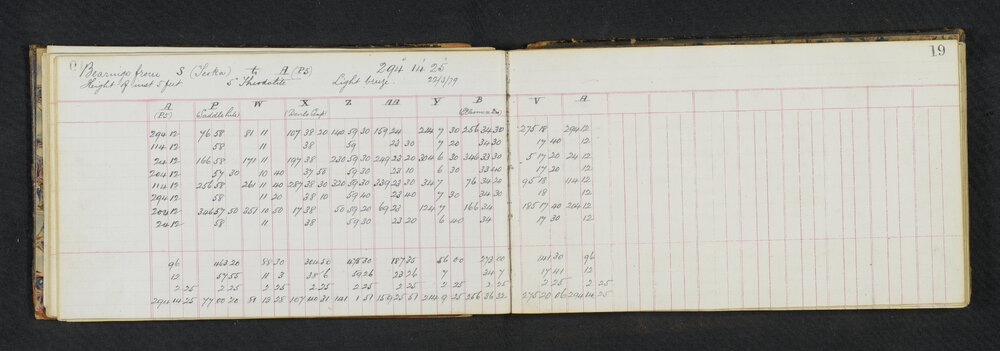 19
Bearings from S (Teeka) to A (P5) 294° 14' 25"
Height of inst 5 feet 5" Theodolite Light breeze 22/3/79
A P W X Z AA Y B V A
(P5) (Saddle hill) (Devils Cap)
294 12 76 58 81 11 107 38 20 140 59 30 159 24 214 7 30 256 34 30 275 18 294 12
114 12 58 11 38 59 23 30 7 20 34 30 17 40 12
24 12 166 58 171 11 197 38 230 59 30 249 23 20 304 6 30 346 33 30 5 17 20 24 12
204 12 57 30 10 40 37 50 59 30 23 10 6 30 33 40 17 20 12
114 12 256 58 261 11 40 287 38 30 320 59 30 339 23 30 34 7 76 34 20 95 18 114 12
294 12 58 11 20 38 10 59 40 23 40 7 30 34 30 18 12
204 12 346 57 50 351 10 50 17 38 50 59 20 69 23 124 7 166 34 185 17 40 204 12
24 12 58 11 38 59 30 23 20 6 40 34 17 30 12
96 463 20 88 30 304 50 475 30 187 35 56 00 273 00 141 30 96
12 57 55 11 3 38 6 59 26 23 26 7 34 7 17 41 12
2 25 2 25 2 25 2 25 2 25 2 25 2 25 2 25 2 25 2 25
294 14 25 77 00 20 81 13 28 107 40 31 141 1 51 159 25 51 214 9 25 256 36 32 275 20 06 294 14 25